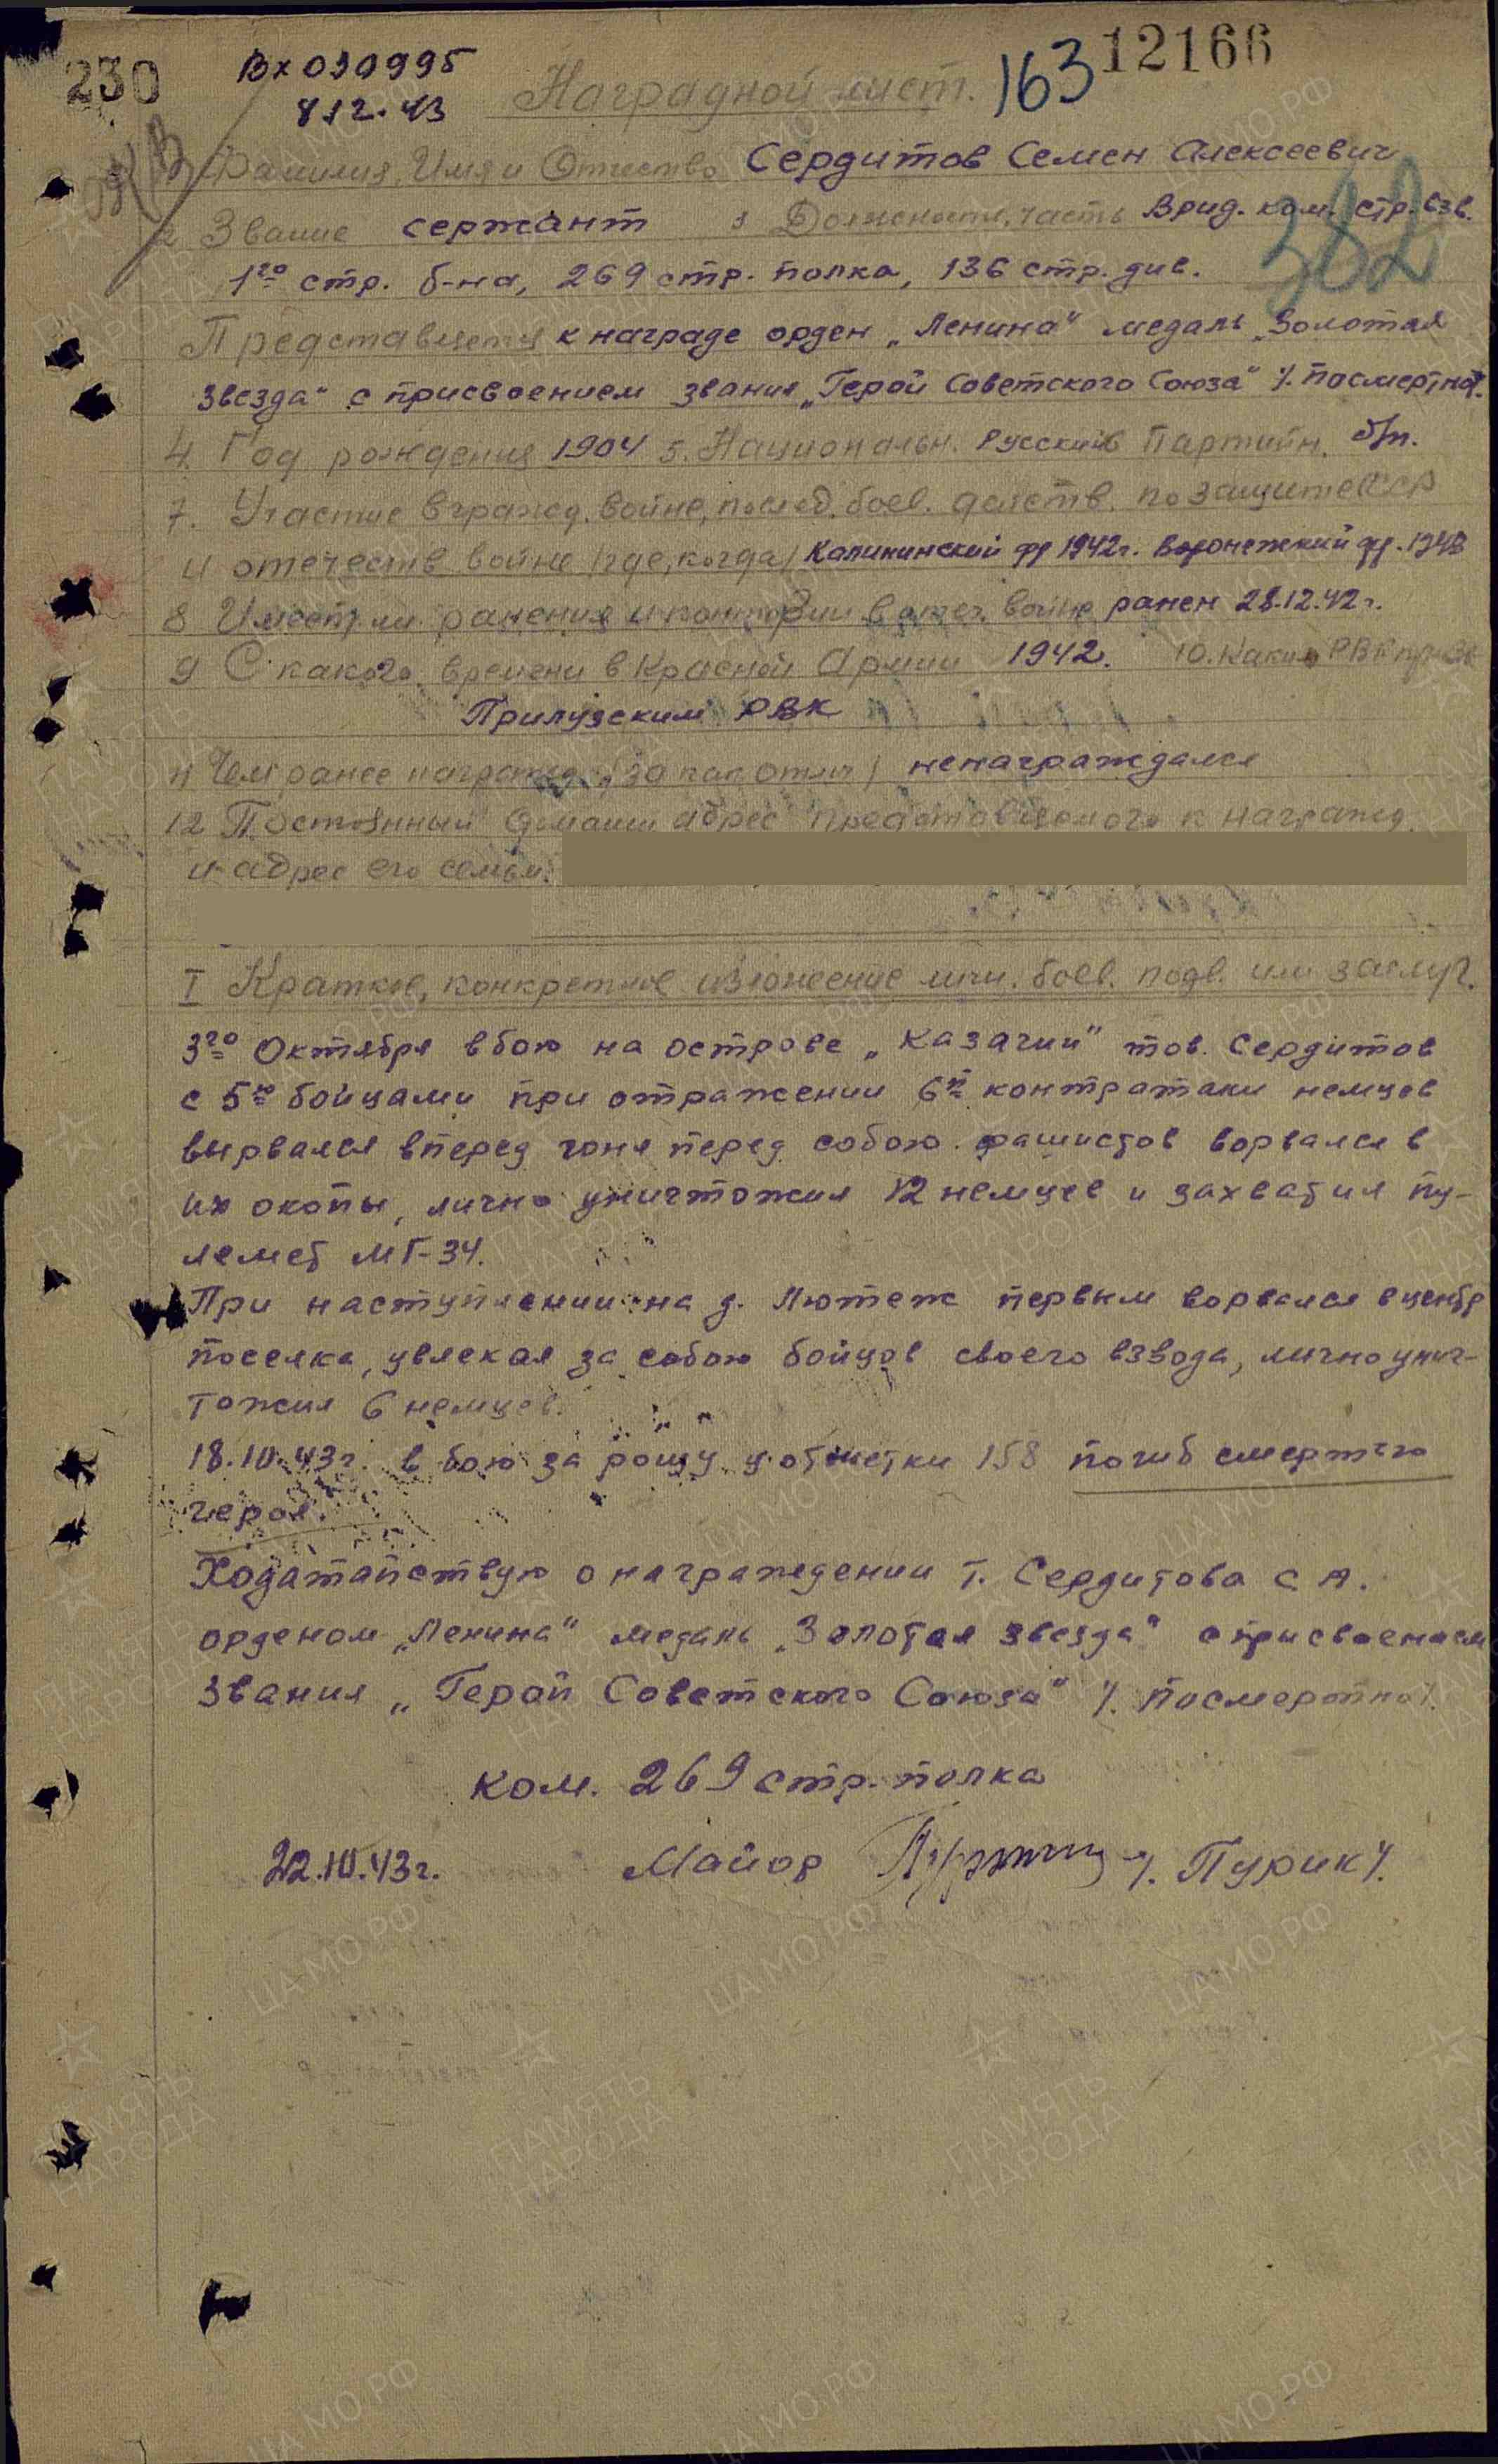 230
Вх 030995
163
12166
812.43
Наградной лист.
Фамилия, Имя и Отчество Сердитов Семен Алексеевич
382
2 Звание сержант 3 Должность, часть Врид. ком. стр. взв.
1го стр. б-на, 269 стр. полка, 136 стр. див.
Представляется к награде орден „Ленина" медаль „Золотая
звезда" с присвоением звания „Герой Советского Союза" /. посмертно/.
4. Год рождения 1904 5. Национальн. Русский 6 Партийн. б/п.
7. Участие в гражд. войне, послед. боев. действ. по защите СССР
и отечеств войне /где, когда/ Калининский фр 1942г. Воронежский фр. 1943
8 Имеет ли ранения и контузии в отеч. войне ранен 28.12.42г.
9 С какого времени в Красной Армии 1942. 10. Каким РВК призв
Прилузским РВК
11 Чем ранее награжд. (за как отлич) ненаграждался
12 Постоянный домашн адрес представляемого к награжд.
и адрес его семьи.
I Краткое, конкретное изложение личн. боев. подв. или заслуг.
3го Октября в бою на острове „Казачий" тов. Сердитов
с 5ю бойцами при отражении 6й контратаки немцев
вырвался вперед гоня перед собою фашистов ворвался в
их окопы, лично уничтожил 12 немцев и захватил пу-
лемет МГ-34.
При наступлении на д. Лютеж первым ворвался в центр
поселка, увлекая за собою бойцов своего взвода, лично унич-
тожил 6 немцев.
18.10.43г. в бою за рощу у отметки 158 погиб смертью
героя.
Ходатайствую о награждении т. Сердитова С А.
орденом „Ленина" медаль „Золотая звезда" с присвоением
звания „Герой Советского Союза" /. посмертно/.
ком. 269 стр. полка
22.10.43г. Майор /. Пурик/.